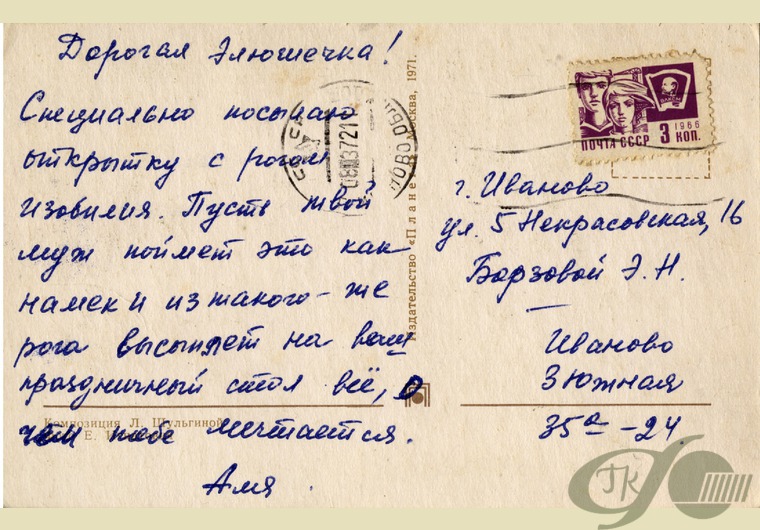 Дорогая Элюшечка!
Специально посылаю
открытку с рогом
изобилия. Пусть твой
муж поймет это как
намек и из такого-же
рога высыплет на ваш
праздничный стол всё, о
чем тебе мечтается.
Амя
Композиция Л. Шульгиной
Е.
Издательство «Планета» Москва, 1971.
08037221
ПОЧТА СССР 3 КОП.
1966
г. Иваново
ул. 5 Некрасовская, 16
Борзовой Э. Н.
Иваново
3 Южная
35а - 24
ГК